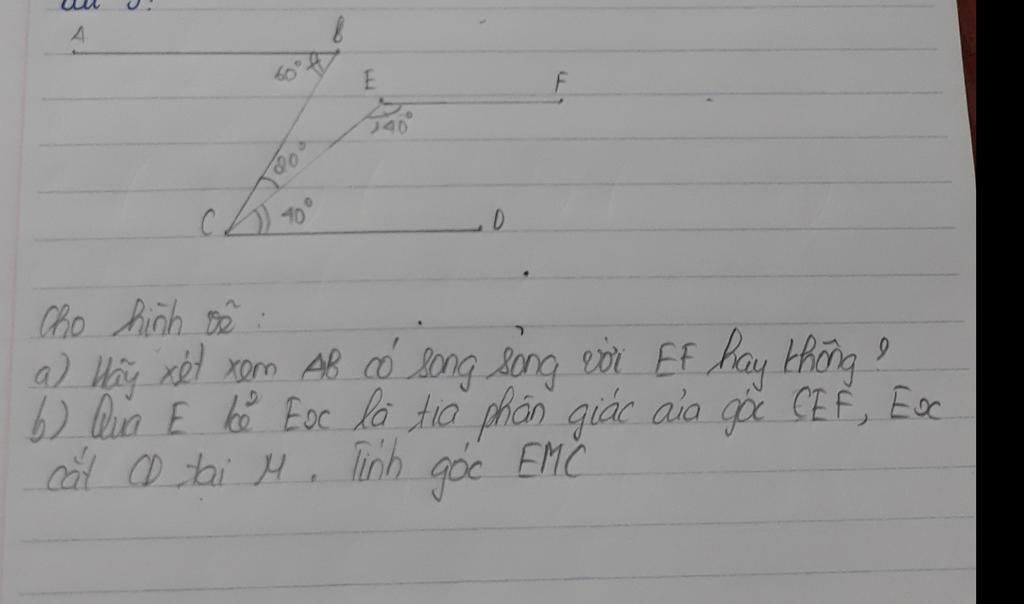 A B
60° E F
140°
20°
C 40° D
Cho hình vẽ :
a) Hãy xét xem AB có song song với EF hay không ?
b) Qua E kẻ Ex là tia phân giác của góc CEF, Ex
cắt CD tại M . Tính góc EMC